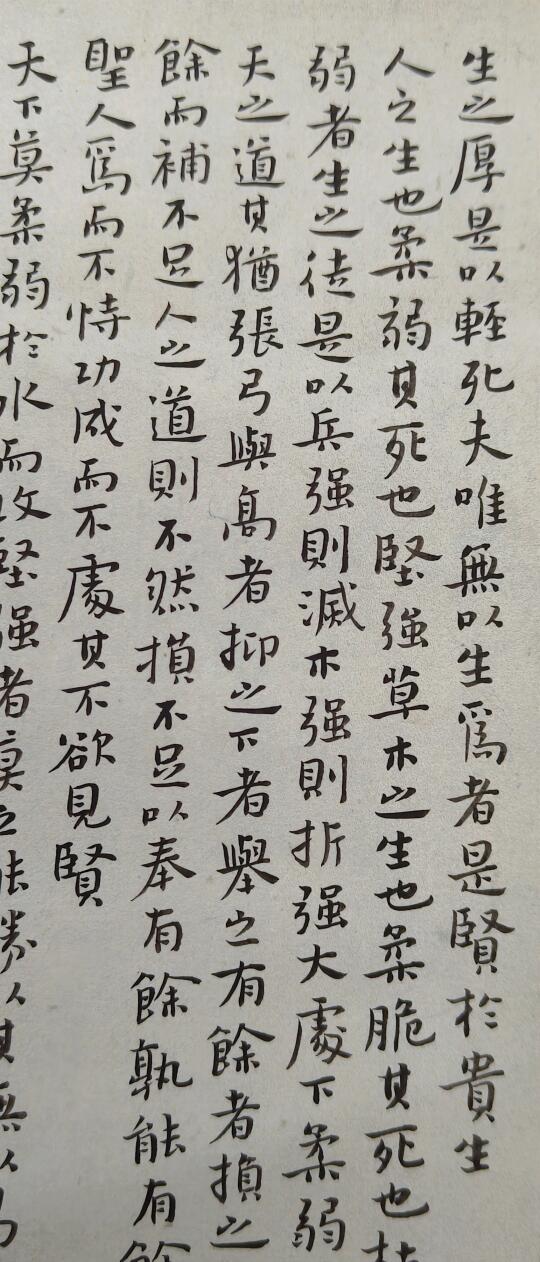 生之厚是以輕死夫唯無以生爲者是賢於貴生
人之生也柔弱其死也堅強草木之生也柔脆其死也枯
弱者生之徒是以兵强則滅木强則折强大處下柔弱
天之道其猶張弓與高者抑之下者舉之有餘者損之
餘而補不足人之道則不然損不足以奉有餘孰能有餘
聖人爲而不恃功成而不處其不欲見賢
天下莫柔弱於水而攻堅强者莫之能勝以其無以易